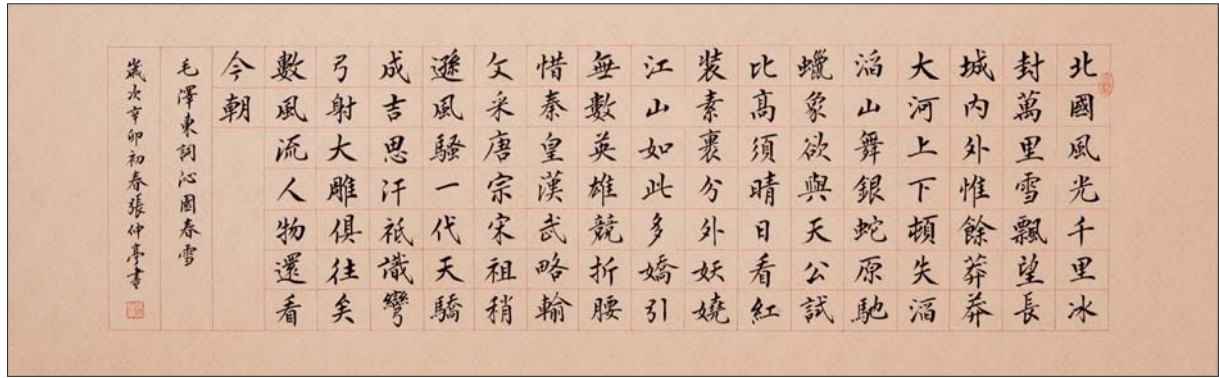 北國風光千里冰
封萬里雪飄望長
城内外惟餘莽莽
大河上下頓失滔
滔山舞銀蛇原馳
蠟象欲與天公試
比高須晴日看紅
裝素裹分外妖嬈
江山如此多嬌引
無數英雄競折腰
惜秦皇漢武略輸
文采唐宗宋祖稍
遜風騷一代天驕
成吉思汗祗識彎
弓射大雕俱往矣
數風流人物還看
今朝
毛澤東詞沁園春雪
歲次辛卯初春張仲亭書